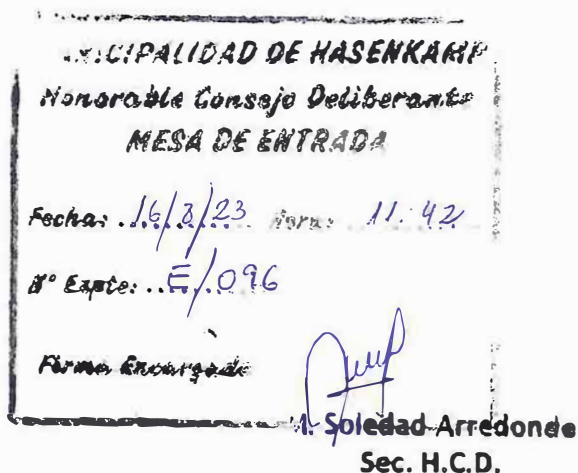 MUNICIPALIDAD DE HASENKAMP
Honorable Consejo Deliberante
MESA DE ENTRADA
Fecha: 16/3/23 Hora: 11:42
N° Expte: E/096
Firma Encargado
M. Soledad Arredondo
Sec. H.C.D.